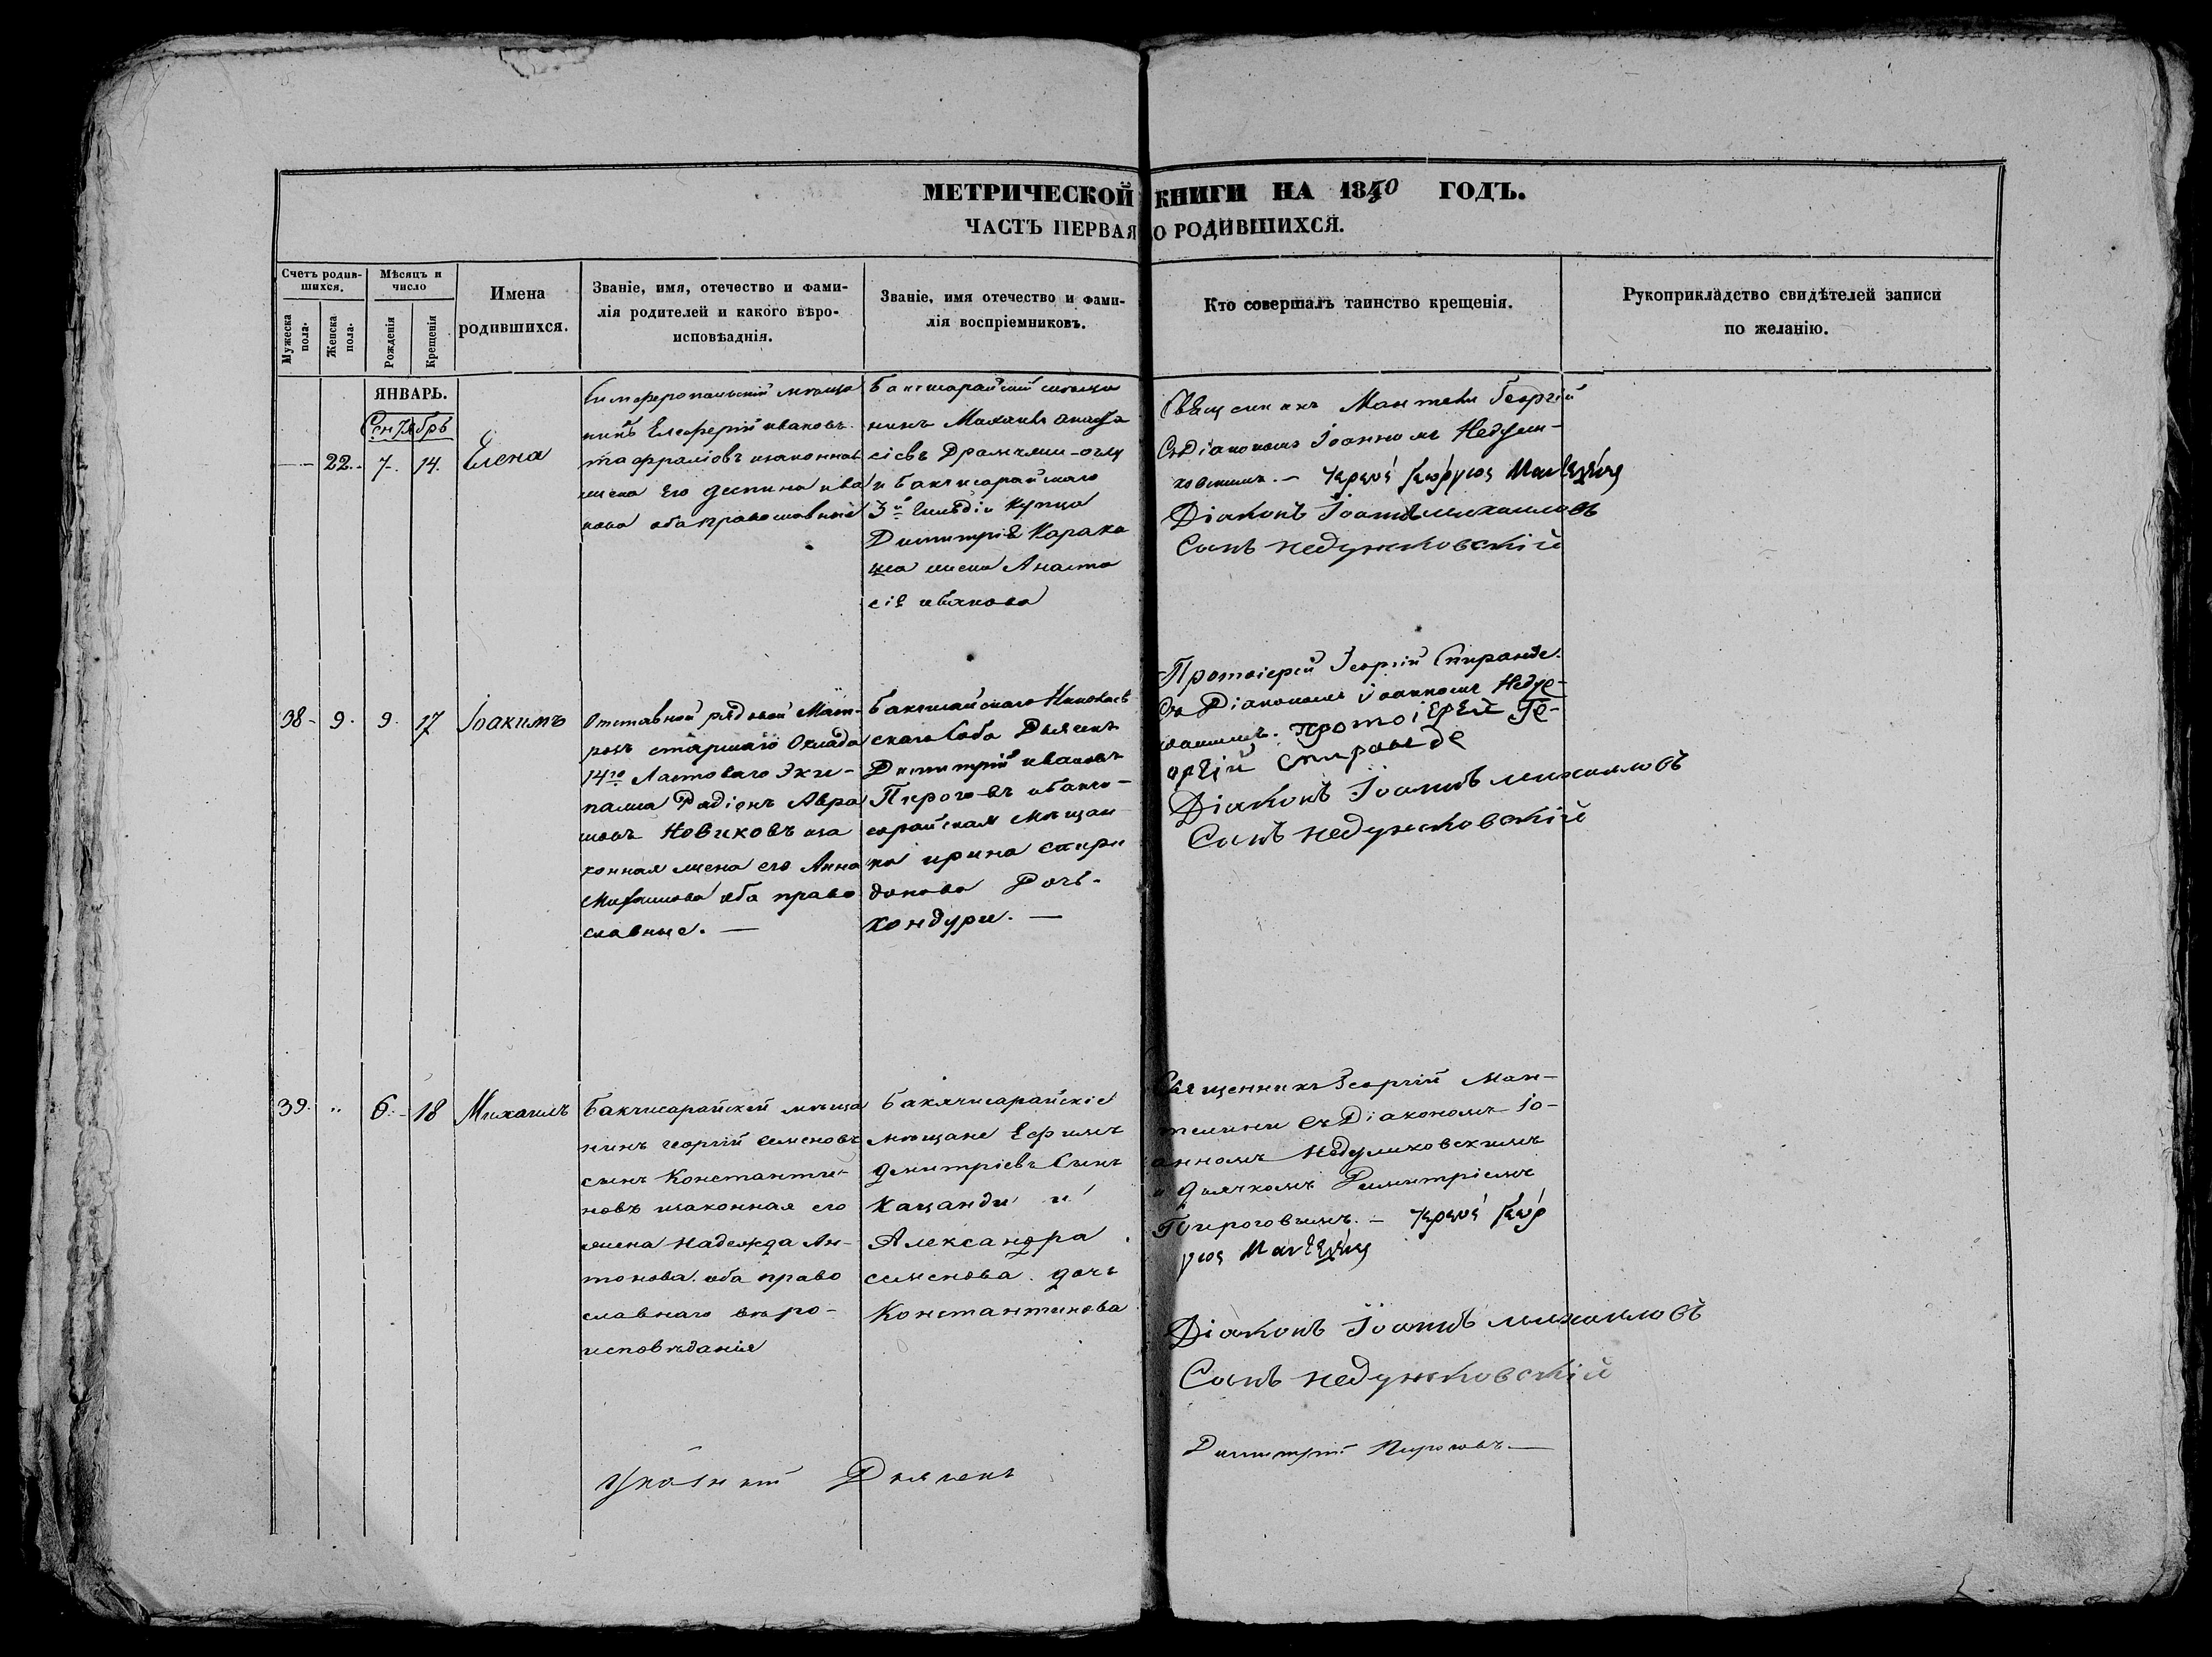 МЕТРИЧЕСКОЙ КНИГИ НА 1850 ГОДЪ.
ЧАСТЬ ПЕРВАЯ О РОДИВШИХСЯ.
Счетъ родив-
шихся.
Мужеска
пола.
Женска
пола.
Мѣсяцъ и
число
Рожденія
Крещенія
Имена
родившихся.
Званіе, имя, отечество и фами-
лія родителей и какого вѣро-
исповѣаднія.
Званіе, имя отечество и фами-
лія воспріемниковъ.
Кто совершалъ таинство крещенія.
Рукоприкладство свидѣтелей записи
по желанію.
ЯНВАРЬ.
Сентябрь
22. 7. 14. Елена
Симферопольскій мѣща
нинъ Елеферій ивановъ
изаконная
жена Его деспина ива
нова оба православные
Бахчисарайскій мѣща
нинъ
сіевъ оглу
и Бахчисарайскаго
3й Гильдіи купца
Димитрія Карака
ша жена Анаста
сія иванова
Священникъ Мантели Георгій
Съ Діакономъ Іоанномъ Недуж-
ковскимъ. -
Діаконъ Іоаннъ михаиловъ
Сынъ недужковскій
38 - 9. 9. 17 Іоакимъ
Отставной рядовой Мат-
росъ старшаго Оклада
14го Ластоваго Эки-
пажа Радіонъ Авра
мовъ Новиковъ иза
конная жена его Анна
оба право
славные. —
Николаев
скаго Собо Дьячекъ
Димитрій ивановъ
Пироговъ ибахчи-
сарайская Мѣщан
ка ирина спири
донова Дочь-
хондури. —
Протоіерей Георгій Спиранде
Съ Діакономъ іоанномъ Недуж-
ковскимъ. протоіерей Ге-
оргій спиранде
Діаконъ Іоаннъ михаиловъ
Сынъ недужковскій
39. " 6. - 18 Михаилъ
Бахчисарайскій мѣща
нинъ георгій семеновъ
сынъ Константи-
новъ изаконная его
жена Надежда Ан-
тонова. оба право
славнаго вѣро-
исповѣданія
Бахчисарайскіе
мѣщане Ефимъ
димитріевъ Сынъ
Кацанди и
Александра
семенова. дочь
Константинова
Священникъ Георгій Ман-
телини съ Діакономъ Іо-
анномъ Недужковскимъ
и дьячкомъ Димитріемъ
Пироговымъ. -
Діаконъ Іоаннъ михаиловъ
Сынъ недужковскій
Указный Дьячекъ
Димитрій Пироговъ —